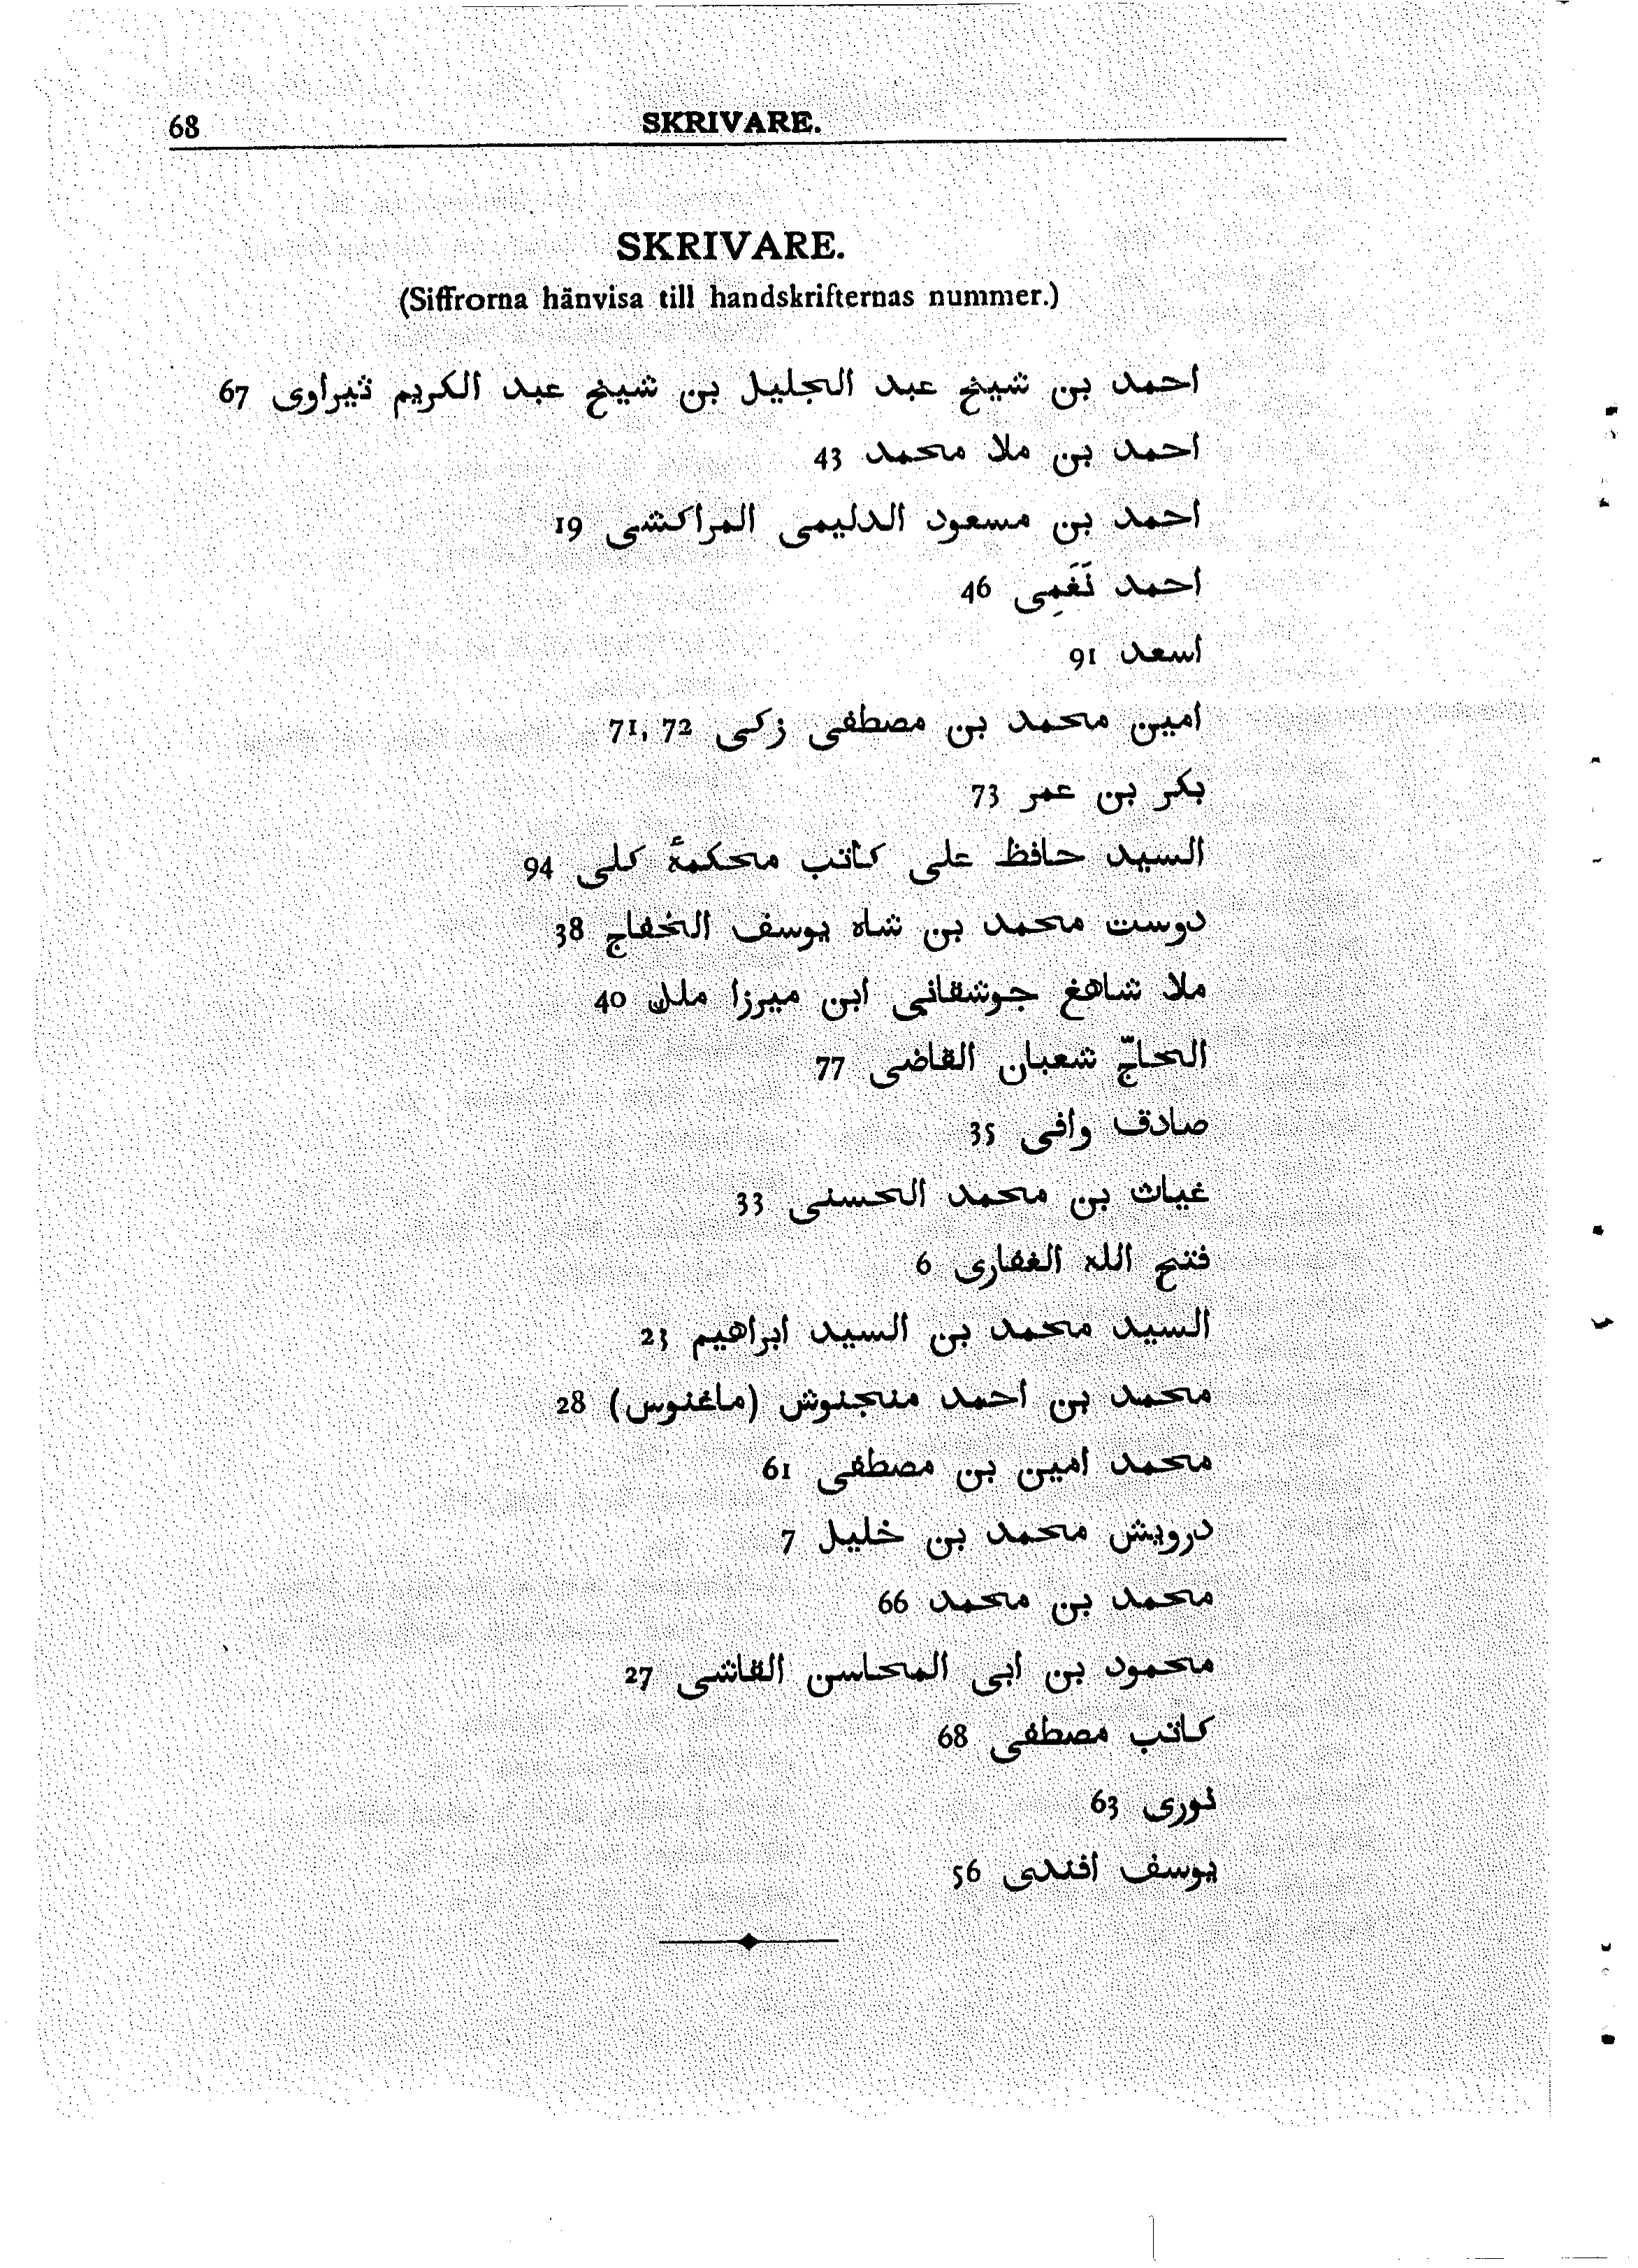 68
SKRIVARE.
SKRIVARE.
(Siffrorna hänvisa till handskrifternas nummer.)
احمد بن شيخ عبد الجليل بن شيخ عبد الكريم ثيراوى 67
احمد بن ملا محمد 43
احمد بن مسعود الدليمى المراكشى 19
احمد نَغَمِى 46
اسعد 91
امين محمد بن مصطفى زكى 71, 72
بكر بن عمر 73
السيد حافظ على كاتب محكمهٔ كلى 94
دوست محمد بن شاه يوسف الخفاج 38
ملا شاهغ جوشقانى ابن ميرزا 40
الحاجّ شعبان القاضى 77
صادق وافى 35
غياث بن محمد الحسنى 33
فتح الله الغفارى 6
السيد محمد بن السيد ابراهيم 23
محمد بن احمد منجنوش (ماغنوس) 28
محمد امين بن مصطفى 61
درويش محمد بن خليل 7
محمد بن محمد 66
محمود بن ابى المحاسن القاشى 27
كاتب مصطفى 68
نورى 63
يوسف افندى 56